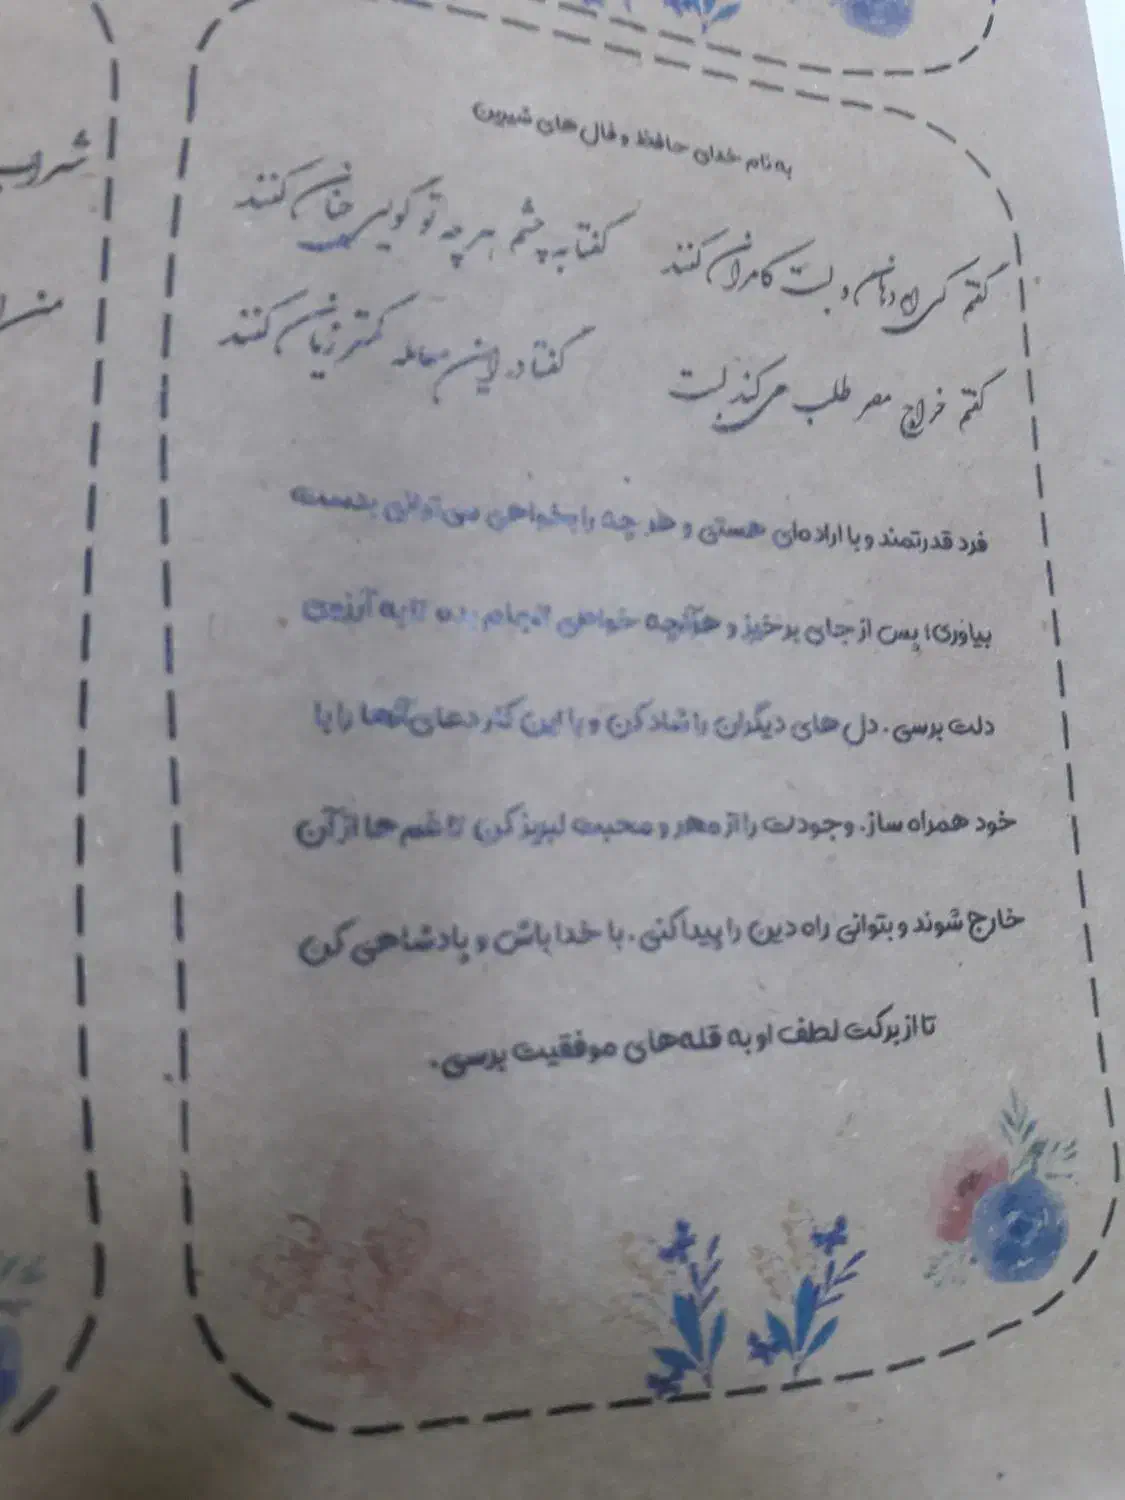 به نام خدای حافظ و فال های شیرین
گفتم کی ام دهان و لبت کامران کنند گفتا به چشم هر چه تو گویی چنان کنند
گفتم خراج مصر طلب می‌کند لبت گفتا در این معامله کمتر زیان کنند
فرد قدرتمند و با اراده‌ای هستی و هر چه را بخواهی می‌توانی بدست
بیاوری؛ پس از جای برخیز و هرآنچه خواهی انجام بده تا به آرزوی
دلت برسی. دل های دیگران را شاد کن و با این کار دعای آنها را با
خود همراه ساز. وجودت را از مهر و محبت لبریز کن تا غم ها از آن
خارج شوند و بتوانی راه دین را پیدا کنی. با خدا باش و پادشاهی کن
تا از برکت لطف او به قله‌های موفقیت برسی.
شراب